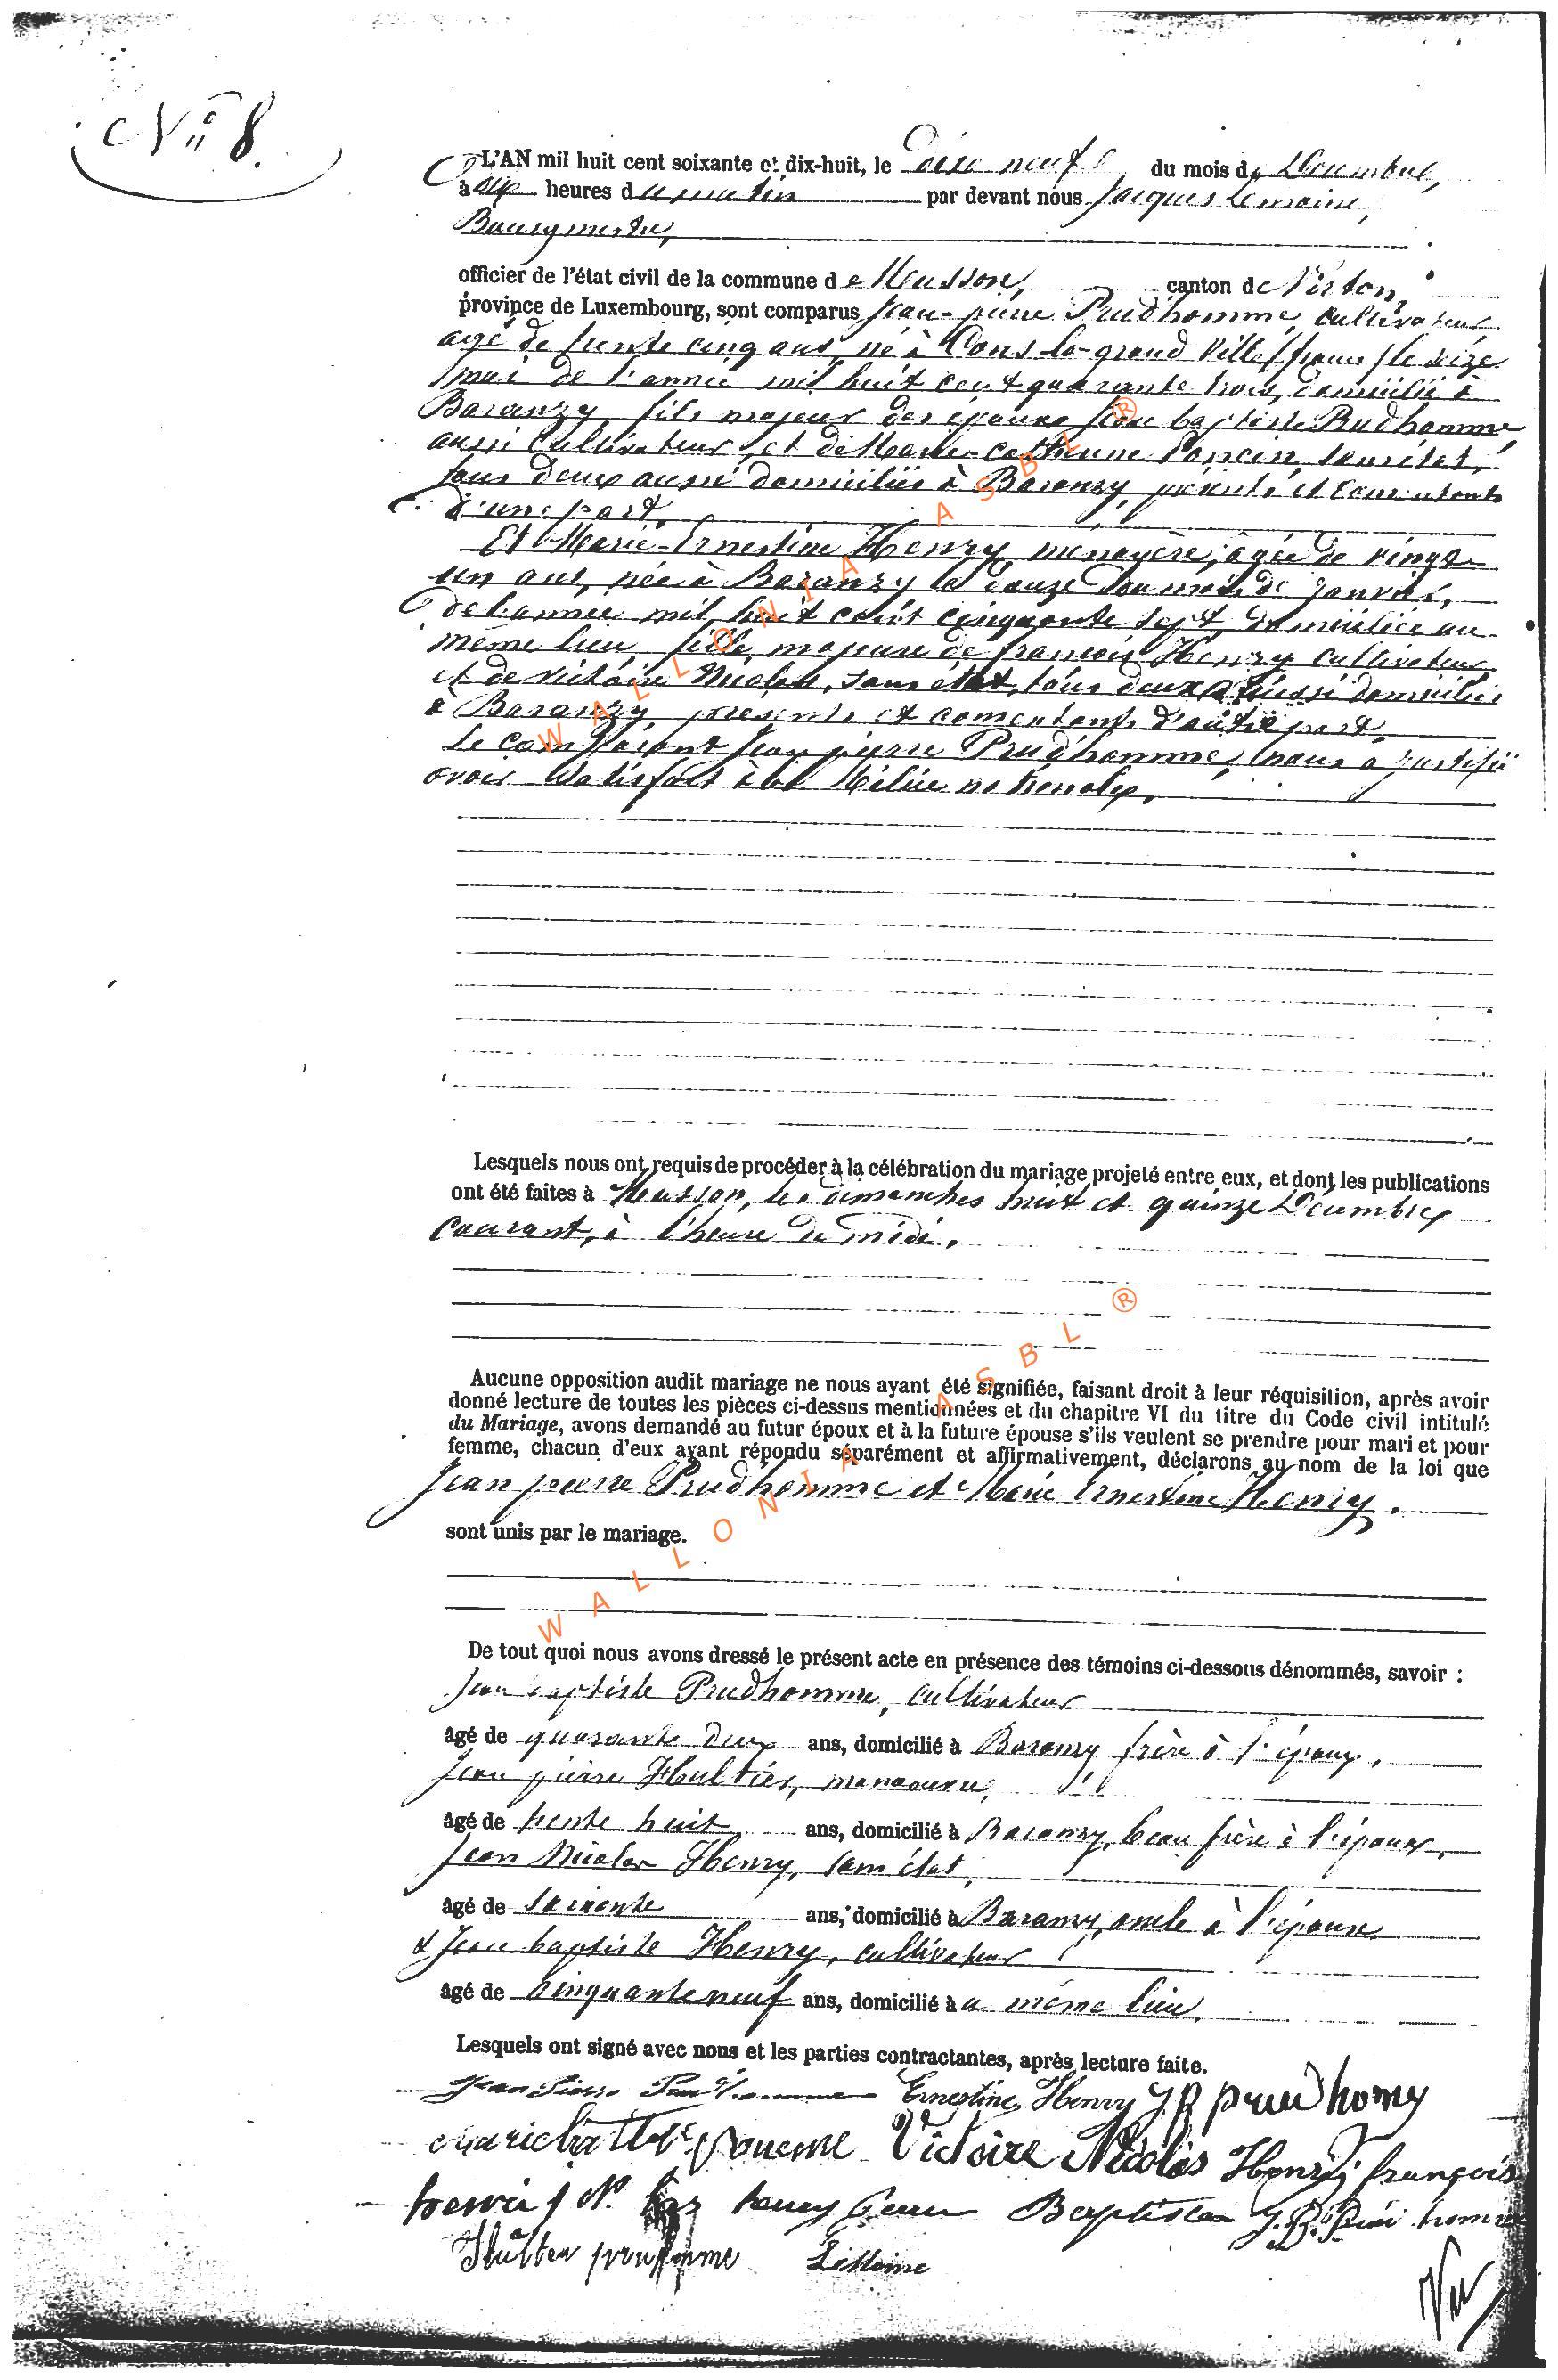 N° 8.
L'AN mil huit cent soixante et dix-huit, le dix neuf du mois de Décembre,
à dix heures du matin par devant nous Jacques Lemoine,
Bourgmestre,
officier de l'état civil de la commune de Musson, canton de Virton,
province de Luxembourg, sont comparus Jean-pierre Prudhomme, cultivateur
agé de trente cinq ans, né à Cons-la-grand Ville (france) le seize
mai de l'année mil huit cent quarante trois, domicilié à
Baranzy, fils majeur des époux Jean baptiste Prudhomme
aussi cultivateur, et de Marie-catherine Poncin, sans état,
tous deux aussi domiciliés à Baranzy, présents et consentants
d'une part.
Et Marie-Ernestine Henry, ménagère, agée de vingt
un ans, née à Baranzy le douze du mois de janvier,
de l'année mil huit cent cinquante sept, domiciliée au
même lieu, fille majeure de françois Henry cultivateur
et de Victoire Nicolas, sans état, tous deux aussi domiciliés
à Baranzy, présents et consentants d'autre part.
Le comparant Jean pierre Prudhomme, nous a justifié
avoir satisfait à la Milice nationale.
Lesquels nous ont requis de procéder à la célébration du mariage projeté entre eux, et dont les publications
ont été faites à Musson, les dimanches huit et quinze Décembre
courant, à l'heure de midi.
Aucune opposition audit mariage ne nous ayant été signifiée, faisant droit à leur réquisition, après avoir
donné lecture de toutes les pièces ci-dessus mentionnées et du chapitre VI du titre du Code civil intitulé
du Mariage, avons demandé au futur époux et à la future épouse s'ils veulent se prendre pour mari et pour
femme, chacun d'eux ayant répondu séparément et affirmativement, déclarons au nom de la loi que
Jean pierre Prudhomme et Marie Ernestine Henry.
sont unis par le mariage.
De tout quoi nous avons dressé le présent acte en présence des témoins ci-dessous dénommés, savoir :
Jean baptiste Prudhomme, cultivateur
âgé de quarante deux ans, domicilié à Baranzy, frère à l'époux.
Jean pierre Hultier, manoeuvre,
âgé de trente huit ans, domicilié à Baranzy, beau frère à l'époux.
Jean Nicolas Henry, sans état,
âgé de soixante ans, domicilié à Baranzy, oncle à l'épouse
& Jean baptiste Henry, cultivateur
âgé de cinquante neuf ans, domicilié au même lieu.
Lesquels ont signé avec nous et les parties contractantes, après lecture faite.
Jean Pierre Prud'homme Ernestine Henry J B prud homme
Victoire Nicolas Henry françois
henry Baptiste J. B. Prud homme
LeMoine
Vu
WALLONIA ASBL ®
WALLONIA ASBL ®